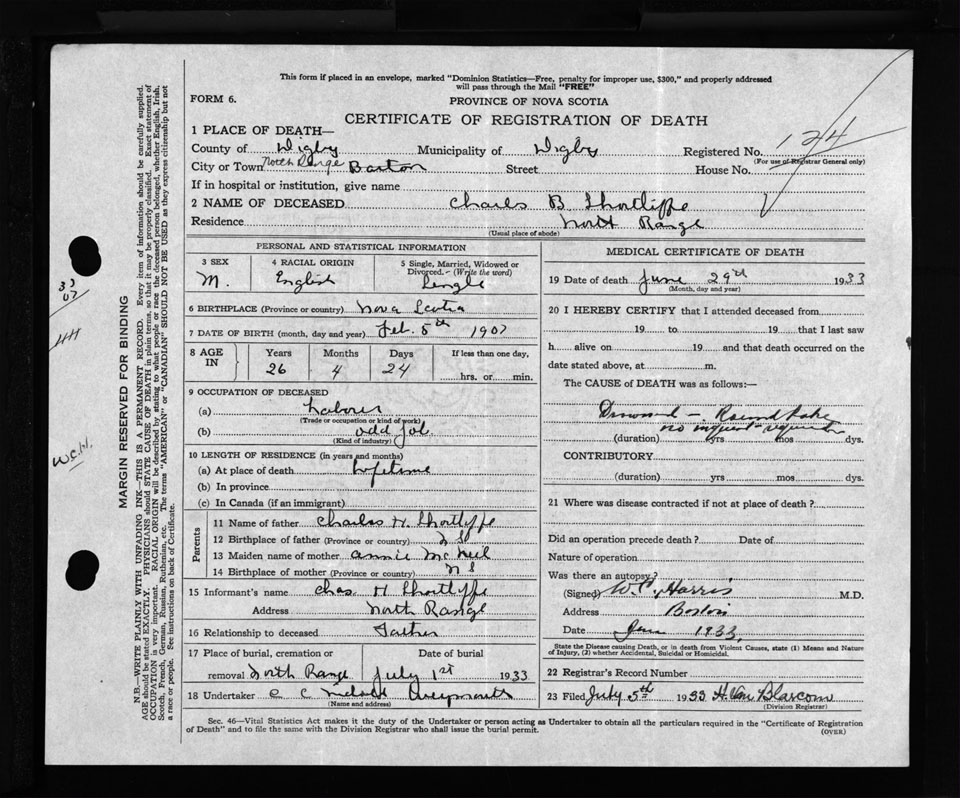 This form if placed in an envelope, marked "Dominion Statistics—Free, penalty for improper use, $300," and properly addressed
will pass through the Mail "FREE"
FORM 6.
PROVINCE OF NOVA SCOTIA
CERTIFICATE OF REGISTRATION OF DEATH
124
1 PLACE OF DEATH—
County of Digby Municipality of Digby Registered No.
(For use of Registrar General only)
City or Town North Range Barton Street House No.
If in hospital or institution, give name
2 NAME OF DECEASED Charles B Shortliffe
Residence North Range
(Usual place of abode)
PERSONAL AND STATISTICAL INFORMATION
3 SEX 4 RACIAL ORIGIN 5 Single, Married, Widowed or
Divorced.—(Write the word)
M. English Single
6 BIRTHPLACE (Province or country) Nova Scotia
7 DATE OF BIRTH (month, day and year) Feb. 5th 1907
8 AGE IN Years Months Days If less than one day,
26 4 24 hrs. or min.
9 OCCUPATION OF DECEASED
(a) Laborer
(Trade or occupation or kind of work)
(b) odd job
(Kind of industry)
10 LENGTH OF RESIDENCE (in years and months)
(a) At place of death Lifetime
(b) In province
(c) In Canada (if an immigrant)
Parents
11 Name of father Charles H. Shortliffe
12 Birthplace of father (Province or country) N S
13 Maiden name of mother Annie McNeil
14 Birthplace of mother (Province or country) N S
15 Informant's name Chas. H Shortliffe
Address North Range
16 Relationship to deceased Father
17 Place of burial, cremation or Date of burial
removal North Range July 1st 1933
18 Undertaker C C Weymouth
(Name and address)
MEDICAL CERTIFICATE OF DEATH
19 Date of death June 29th 1933
(Month, day and year)
20 I HEREBY CERTIFY that I attended deceased from
19 to 19 that I last saw
h alive on 19 and that death occurred on the
date stated above, at m.
The CAUSE of DEATH was as follows:—
Drowned — Round Lake
no inquest required
(duration) yrs mos dys.
CONTRIBUTORY
(duration) yrs mos dys.
21 Where was disease contracted if not at place of death?
Did an operation precede death? Date of
Nature of operation
Was there an autopsy?
(Signed) Harris M.D.
Address Barton
Date 1933
State the Disease causing Death, or in death from Violent Causes, state (1) Means and Nature
of Injury, (2) whether Accidental, Suicidal or Homicidal.
22 Registrar's Record Number
23 Filed July 5th 1933 H. Van Blarcom
(Division Registrar)
Sec. 46—Vital Statistics Act makes it the duty of the Undertaker or person acting as Undertaker to obtain all the particulars required in the "Certificate of Registration
of Death" and to file the same with the Division Registrar who shall issue the burial permit.
(OVER)
MARGIN RESERVED FOR BINDING
N.B.—WRITE PLAINLY WITH UNFADING INK—THIS IS A PERMANENT RECORD. Every item of information should be carefully supplied.
AGE should be stated EXACTLY. PHYSICIANS should STATE CAUSE OF DEATH in plain terms, so that it may be properly classified. Exact statement of
OCCUPATION is very important. RACIAL ORIGIN will be described by stating to what people or race the deceased person belonged, whether English, Irish,
Scotch, French, German, Russian, Ruthenian, etc. The terms "AMERICAN" or "CANADIAN" SHOULD NOT BE USED as they express citizenship but not
a race or people. See instructions on back of Certificate.
33
07